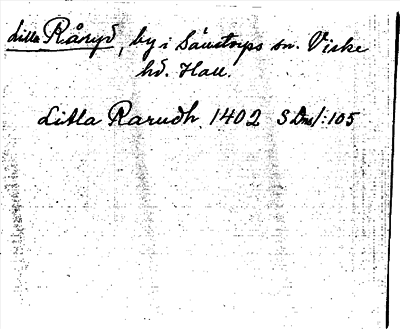 Lilla Råryd, by i Sällstorps sn. Viske
hd. Hall.
Litla Rarudh 1402 SDns 1:105